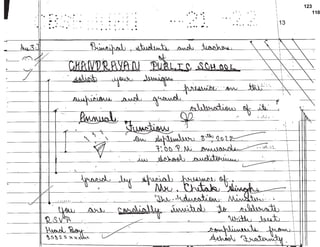 123
118
13
Ans 3.
Principal, students and teachers
of
CHANDRAYAN PUBLIC SCHOOL
solicit your benign
presence on the
auspicious and grand
celebration of its
Annual
Function
on September 8th 2022
7:00 P.M onwards
in school auditorium
graced by special presence of,
Mr. Chetak Singh
The Education Minister
You are cordially invited to celebrate
R.S.V.P
With best
Head Boy
compliments from
School Fraternity